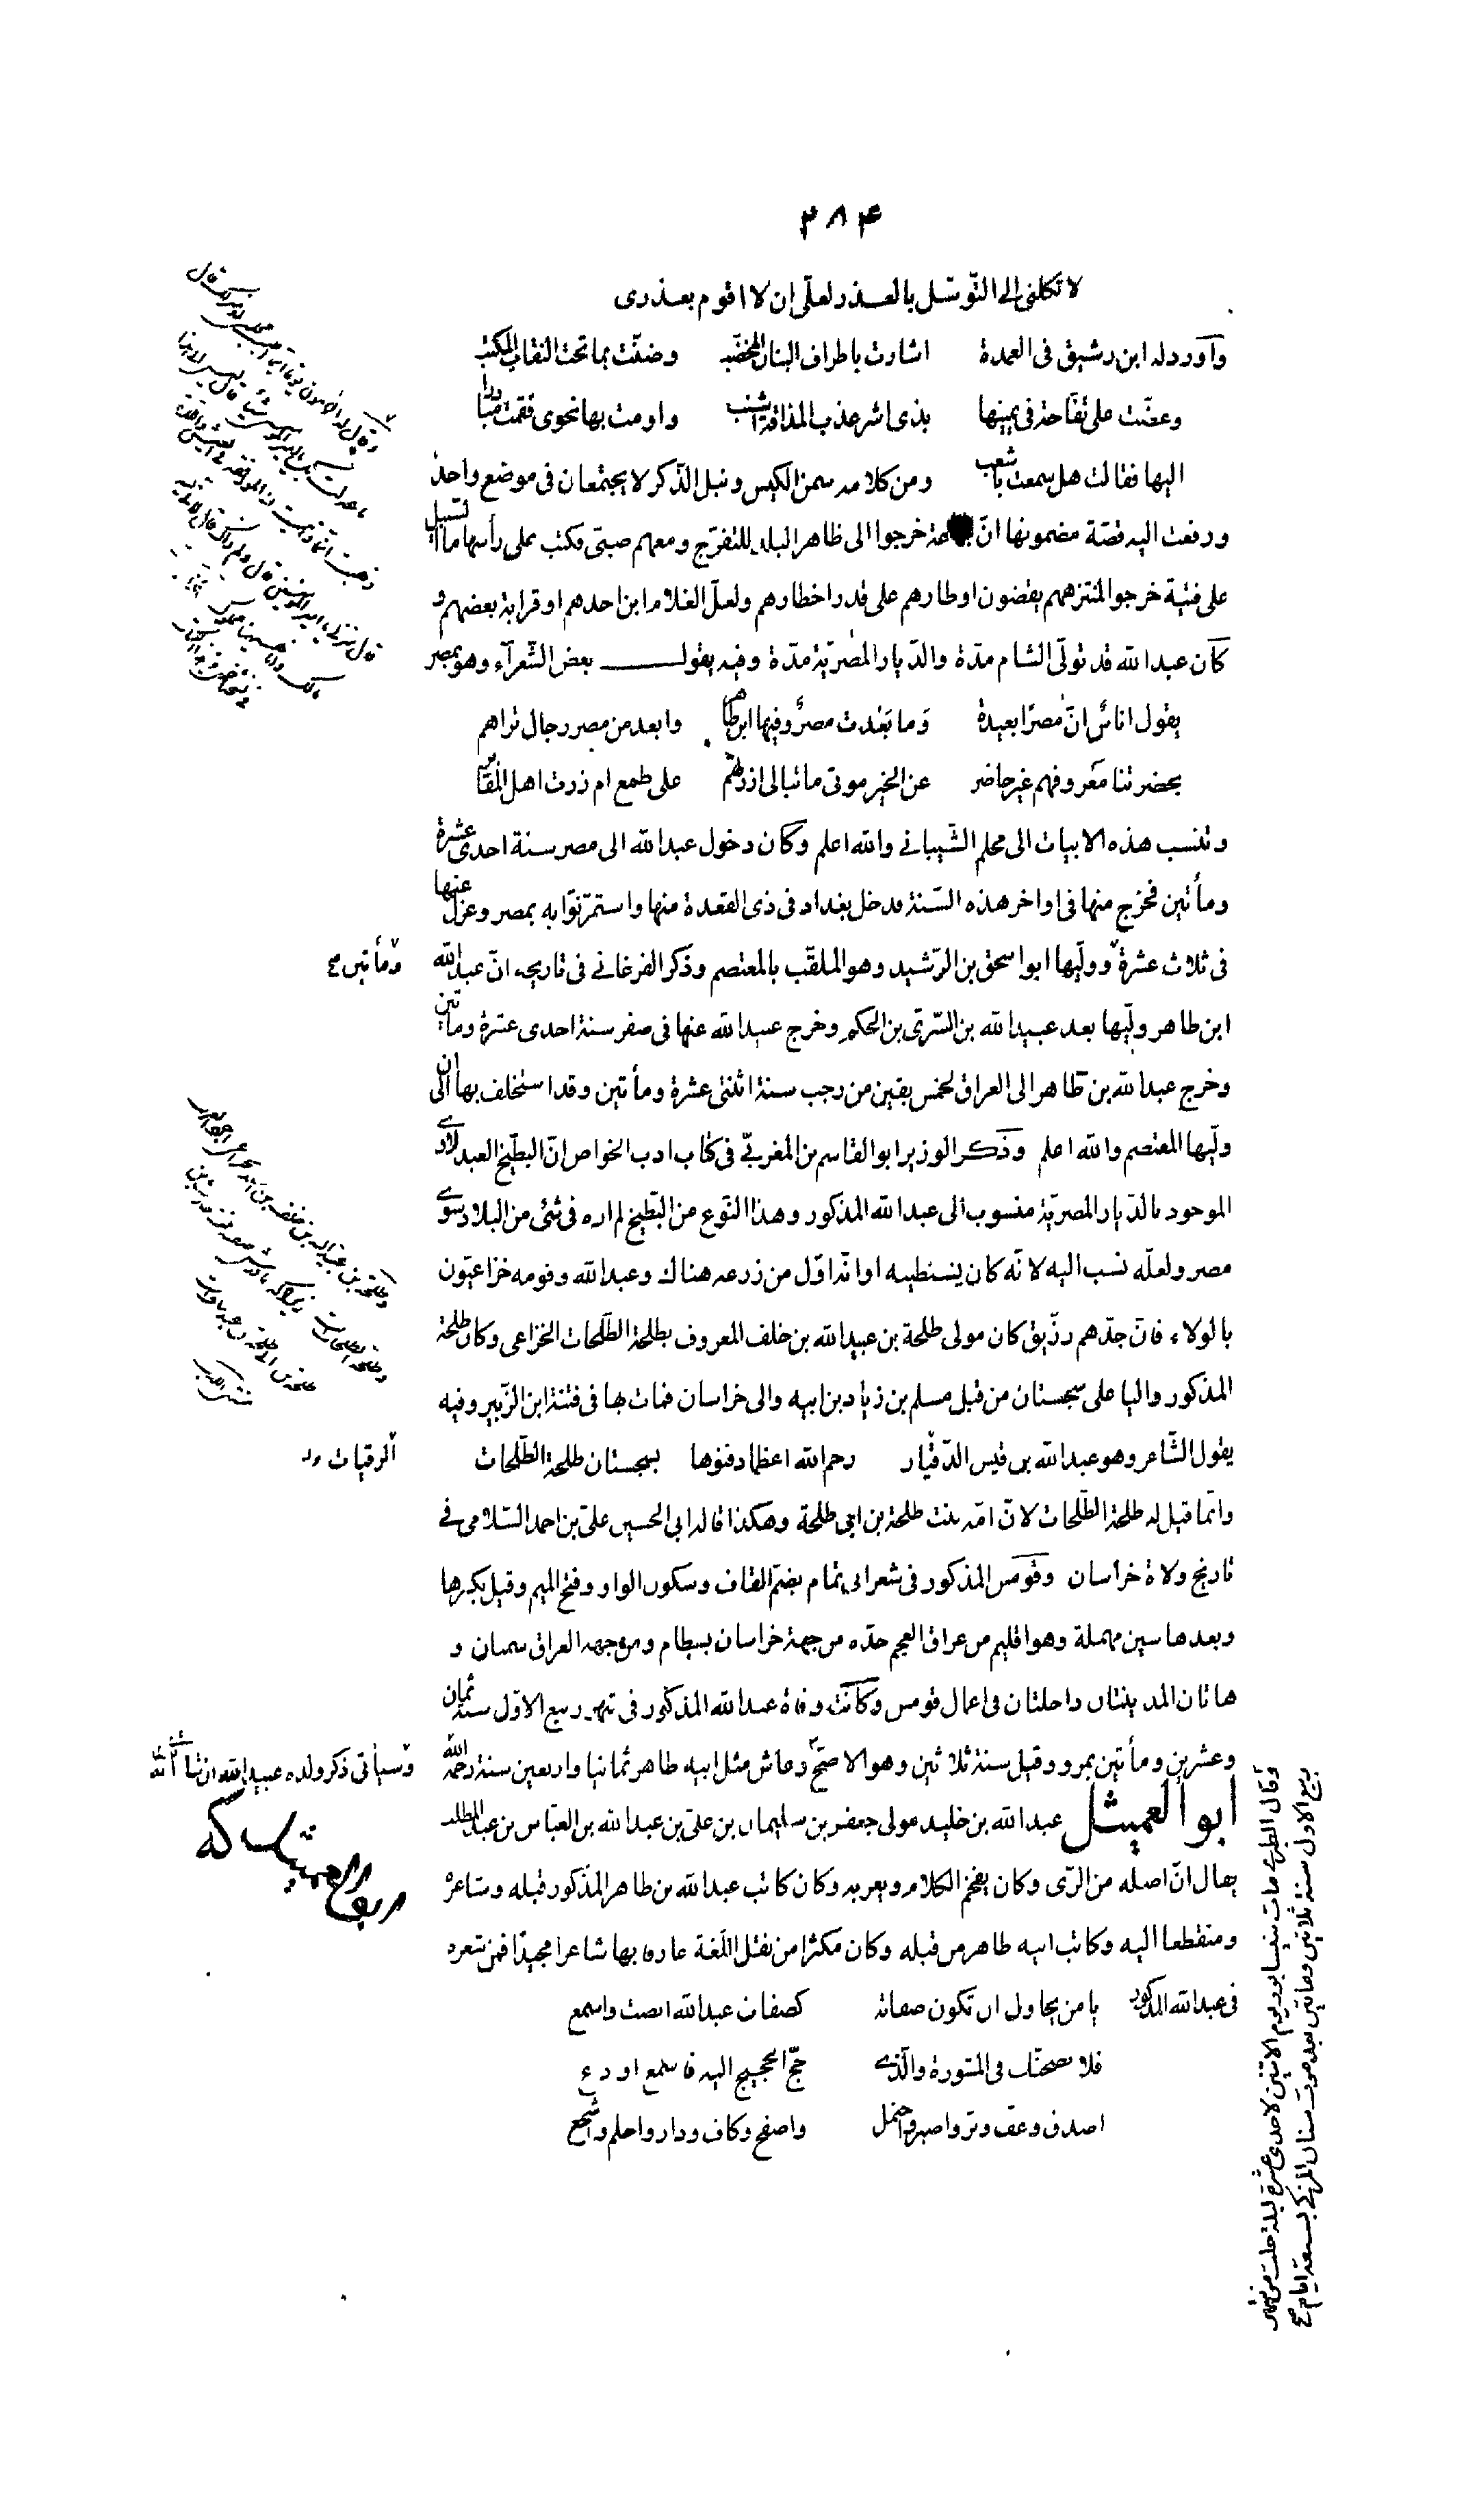 ٢٨٤
لا تكلنى الى التّوسّل بالعذر لعلّى ان لا اقوم بعذرى
وآورد له ابن رشيق فى العمدة اشارت باطراف البنان المخضّب وضنّت بما تحت النقاب المكتب
وعضّت على تفّاحة فى يمينها بذى اشر عذب المذاقة اشنب واومت بها نحوى فقمت مبادرا
اليها فقالت هل سمعت باشعب ومن كلامه سمن الكيس ونبل الذّكر لا يجتمعان فى موضع واحد
ورفعت اليه قصّة مضمونها انّ جماعة خرجوا الى ظاهر البلد للتفرّج ومعهم صبىّ فكتب على رأسها ما السّبيل
على فتية خرجوا لمتنزههم يقضون اوطارهم على قدر اخطارهم ولعلّ الغلام ابن احدهم او قرابة بعضهم و
كان عبد الله قد تولّى الشام مدّة والدّيار المصريّة مدّة وفيه يقول بعض الشّعرآء وهو بمصر
يقول اناسٌ انّ مصرًا بعيدة وَما بَعُدت مصرٌ وفيها ابن طاهر وابعد من مصر رجال تراهم
بحضرتنا معروفهم غير حاضر عن الخير موتى ما تبالى ازرتهم على طمع ام زرت اهل المقابر
وتنسب هذه الابيات الى محلم الشّيبانى والله اعلم وكان دخول عبد الله الى مصر سنة احدى عشرة
ومأتين فخرج منها فى اواخر هذه السّنة فدخل بغداد فى ذى القعدة منها واستمرّ نوّابه بمصر وعزل عنها
فى ثلاث عشرة وولّيها ابو اسحق بن الرّشيد وهو الملقّب بالمعتصم وذكر الفرغانى فى تاريخه انّ عبد الله
ومأتين صح
ابن طاهر ولّيها بعد عبيد الله بن السّرىّ بن الحكم وخرج عبيد الله عنها فى صفر سنة احدى عشرة ومأتين
وخرج عبد الله بن طاهر الى العراق لخمس بقين من رجب سنة اثنتى عشرة ومأتين وقد استخلف بها الى ان
ولّيها المعتصم والله اعلم وذكر الوزير ابو القاسم بن المغربىّ فى كتاب ادب الخواص انّ البطّيخ العبدلاوى
الموجود بالدّيار المصريّة منسوب الى عبد الله المذكور وهذا النّوع من البطّيخ لم اره فى شئ من البلاد سوى
مصر ولعلّه نسب اليه لانّه كان يستطيبه او انّه اوّل من زرعه هناك وعبد الله وقومه خزاعيّون
بالولاء فانّ جدّهم رزيق كان مولى طلحة بن عبيد الله بن خلف المعروف بطلحة الطّلحات الخزاعى وكان طلحة
المذكور واليا على سجستان من قبل مسلم بن زياد بن ابيه والى خراسان فمات بها فى فتنة ابن الزّبير وفيه
يقول الشّاعر وهو عبد الله بن قيس الرّقيّات رحم الله اعظما دفنوها بسجستان طلحة الطّلحات
الرقيات
وانّما قيل له طلحة الطّلحات لانّ امّه بنت طلحة بن ابى طلحة وهكذا قاله ابى الحسين علىّ بن احمد السّلامى فى
تاريخ ولاة خراسان وقومس المذكور فى شعر ابى تمام بضمّ القاف وسكون الواو وفتح الميم وقيل بكسرها
وبعدها سين مهملة وهو اقليم من عراق العجم حدّه من جهة خراسان بسطام ومن جهة العراق سمنان و
هاتان المدينتان داخلتان فى اعمال قومس وكانت وفاة عبد الله المذكور فى شهر ربيع الاوّل سنة ثمان
وعشرين ومأتين بمرو وقيل سنة ثلاثين وهو الاصحّ وعاش مثل ابيه طاهر ثمانيا واربعين سنة رحمه الله
وسيأتى ذكر ولده عبيد الله ان شاء الله
ابو العميثل عبد الله بن خليد مولى جعفر بن سليمان بن علىّ بن عبد الله بن العبّاس بن عبد المطلب
ابو العميثل
يقال انّ اصله من الرّى وكان يفخم الكلام ويعربه وكان كاتب عبد الله بن طاهر المذكور قبله وشاعره
ومنقطعا اليه وكاتب ابيه طاهر من قبله وكان مكثرا من نقل اللّغة عارفا بها شاعرا مجيدًا فمن شعره
فى عبد الله المذكور يا من يحاول ان تكون صفاته كصفات عبد الله انصت واسمع
فلانصحنّك فى المشورة والّذى حجّ الحجيج اليه فاسمع او دع
اصدق وعفّ وبرّ واصبر واحتمل واصفح وكاف ودار واحلم واشجع
وقال الطبرى مات بنيسابور يوم الاثنين لاحدى عشرة ليلة خلت من شهر
ربيع الاول سنة ثلاثين ومأتين بعد موت اشناس التركى بتسعة ايام صح